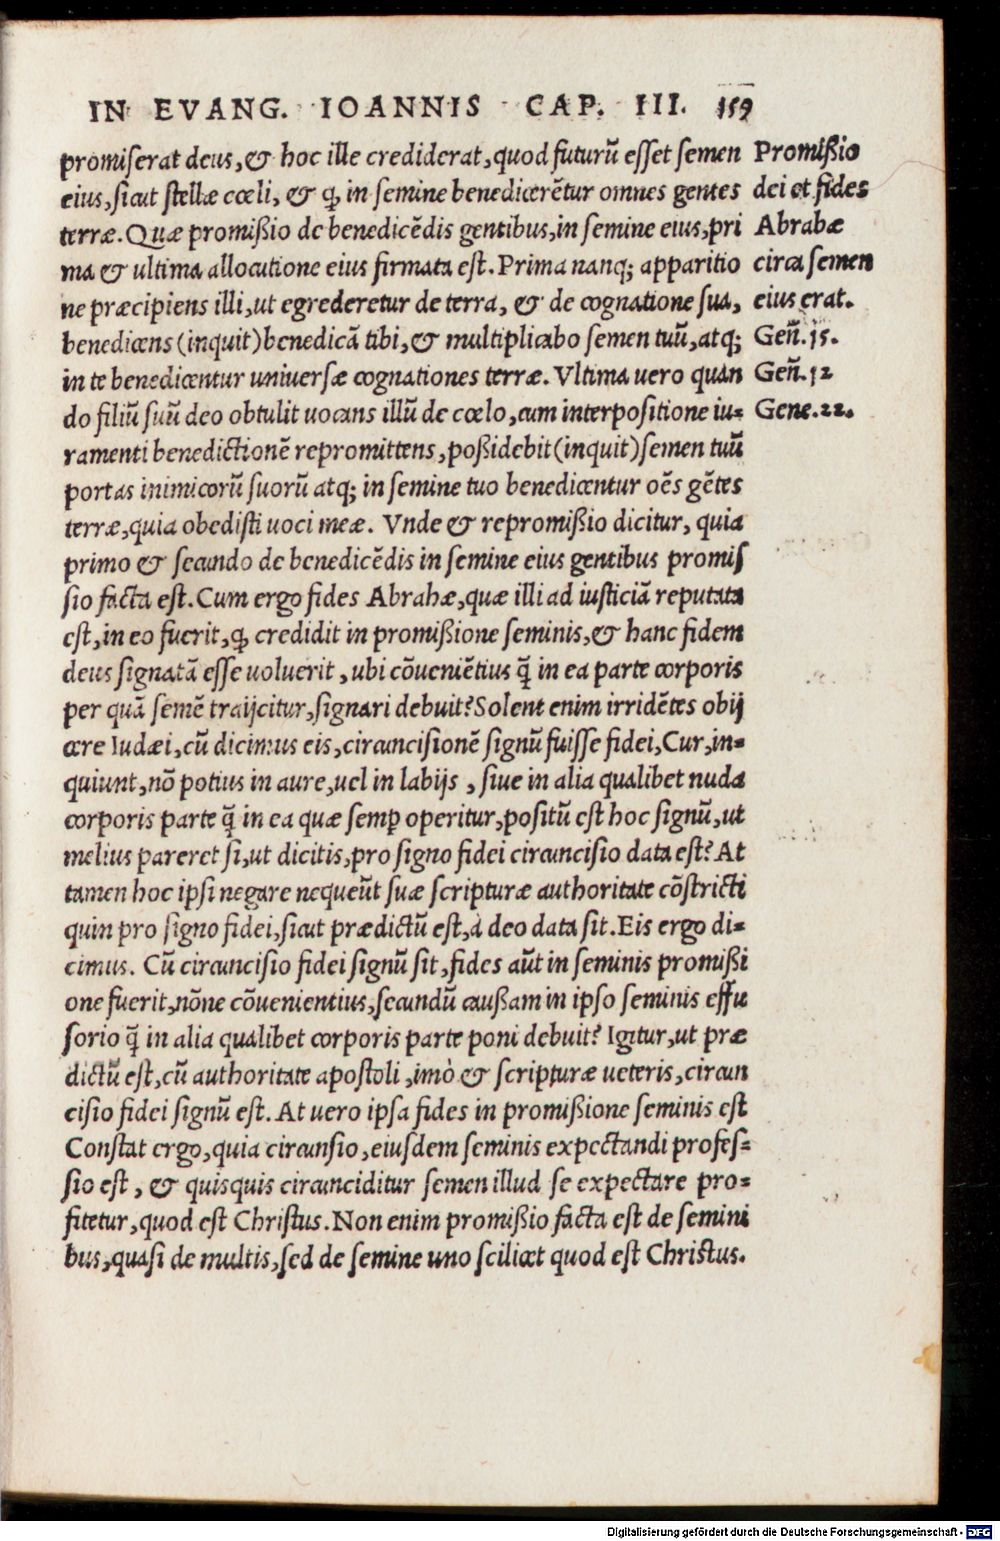 IN EVANG. IOANNIS CAP. III. 159
promiserat deus, & hoc ille crediderat, quod futurũ esset semen
eius, sicut stellæ cœli, & ꝙ in semine benedicerẽtur omnes gentes
terræ. Quæ promißio de benedicẽdis gentibus, in semine eius, pri
ma & ultima allocutione eius firmata est. Prima nanq; apparitio
ne præcipiens illi, ut egrederetur de terra, & de cognatione sua,
benedicens (inquit) benedicã tibi, & multiplicabo semen tuũ, atq;
in te benedicentur universæ cognationes terræ. Vltima uero quan
do filiũ suũ deo obtulit uocans illũ de cœlo, cum interpositione iu-
ramenti benedictionẽ repromittens, poßidebit (inquit) semen tuũ
portas inimicorũ suorũ atq; in semine tuo benedicentur oẽs gẽtes
terræ, quia obedisti uoci meæ. Vnde & repromißio dicitur, quia
primo & secundo de benedicẽdis in semine eius gentibus promis
sio facta est. Cum ergo fides Abrahæ, quæ illi ad iusticiã reputata
est, in eo fuerit, ꝙ credidit in promißione seminis, & hanc fidem
deus signatã esse uoluerit, ubi cõueniẽtius q̃ in ea parte corporis
per quã semẽ traijcitur, signari debuit? Solent enim irridẽtes obij
cere Iudæi, cũ dicimus eis, circuncisionẽ signũ fuisse fidei, Cur, in-
quiunt, nõ potius in aure, uel in labijs, siue in alia qualibet nuda
corporis parte q̃ in ea quæ semꝑ operitur, positũ est hoc signũ, ut
melius pareret si, ut dicitis, pro signo fidei circuncisio data est? At
tamen hoc ipsi negare nequeũt suæ scripturæ authoritate cõstricti
quin pro signo fidei, sicut prædictũ est, à deo data sit. Eis ergo di-
cimus. Cũ circuncisio fidei signũ sit, fides aũt in seminis promißi
one fuerit, nõne cõuenientius, secundũ caußam in ipso seminis effu
sorio q̃ in alia qualibet corporis parte poni debuit? Igitur, ut præ
dictũ est, cũ authoritate apostoli, imò & scripturæ ueteris, circun
cisio fidei signũ est. At uero ipsa fides in promißione seminis est
Constat ergo, quia circunsio, eiusdem seminis expectandi profes-
sio est, & quisquis circunciditur semen illud se expectare pro-
fitetur, quod est Christus. Non enim promißio facta est de semini
bus, quasi de multis, sed de semine uno scilicet quod est Christus.
Promißio
dei et fides
Abrahæ
circa semen
eius erat.
Geñ. 15.
Geñ. 12
Gene. 22.
Digitalisierung gefördert durch die Deutsche Forschungsgemeinschaft - DFG